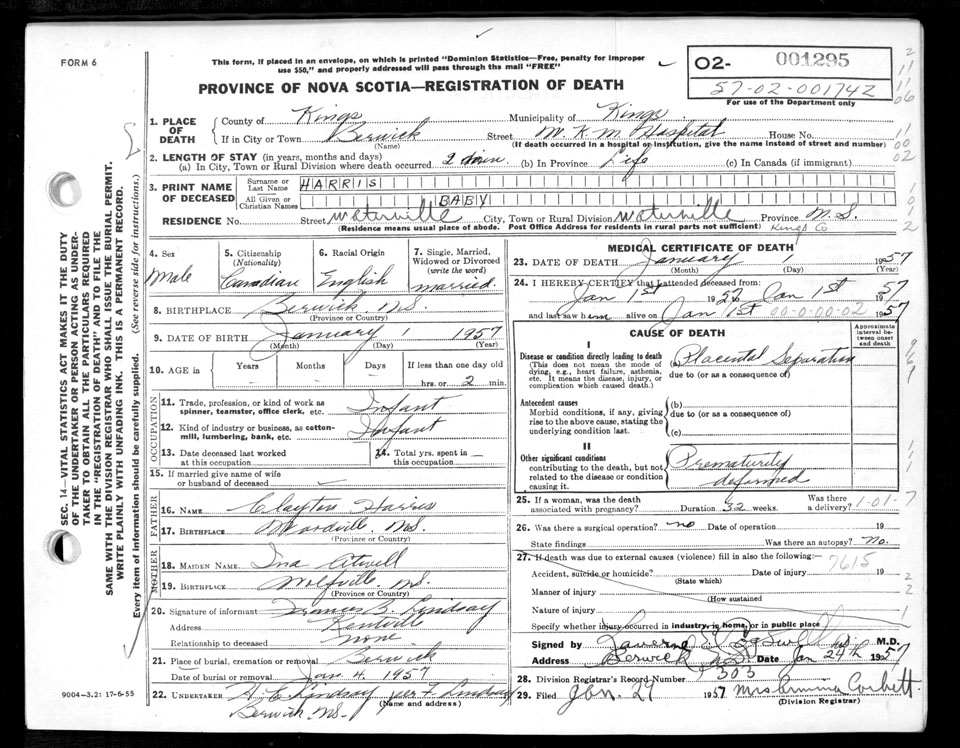 FORM 6
This form, if placed in an envelope, on which is printed "Dominion Statistics—Free, penalty for improper
use $50," and properly addressed will pass through the mail "FREE"
PROVINCE OF NOVA SCOTIA—REGISTRATION OF DEATH
O2- 001295
57-02-001742
For use of the Department only
1. PLACE OF DEATH
County of Kings Municipality of Kings
If in City or Town Berwick Street W. K. M. Hospital House No.
(Name) (If death occurred in a hospital or institution, give the name instead of street and number)
2. LENGTH OF STAY (in years, months and days)
(a) In City, Town or Rural Division where death occurred 2 min. (b) In Province Life (c) In Canada (if immigrant)
3. PRINT NAME OF DECEASED
Surname or Last Name HARRIS
All Given or Christian Names BABY
RESIDENCE No. Street Waterville City, Town or Rural Division Waterville Province N.S.
(Residence means usual place of abode. Post Office Address for residents in rural parts not sufficient) Kings Co
4. Sex
Male
5. Citizenship
(Nationality)
Canadian
6. Racial Origin
English
7. Single, Married,
Widowed or Divorced
(write the word)
married.
8. BIRTHPLACE Berwick N.S.
(Province or Country)
9. DATE OF BIRTH January 1 1957
(Month) (Day) (Year)
10. AGE IN Years Months Days If less than one day old
hrs. or 2 min.
OCCUPATION
11. Trade, profession, or kind of work as
spinner, teamster, office clerk, etc. Infant
12. Kind of industry or business, as cotton-
mill, lumbering, bank, etc. Infant
13. Date deceased last worked
at this occupation
14. Total yrs. spent in
this occupation
15. If married give name of wife
or husband of deceased
FATHER
16. NAME Clayton Harris
17. BIRTHPLACE Woodville N.S.
(Province or Country)
MOTHER
18. MAIDEN NAME Ina Atwell
19. BIRTHPLACE Wolfville N.S.
(Province or Country)
20. Signature of informant Frances B. Lindsay
Address Kentville
Relationship to deceased none
21. Place of burial, cremation or removal Berwick
Date of burial or removal Jan 4. 1957
22. UNDERTAKER H. C. Lindsay per F. Lindsay
(Name and address)
Berwick N.S.
MEDICAL CERTIFICATE OF DEATH
23. DATE OF DEATH January 1 1957
(Month) (Day) (Year)
24. I HEREBY CERTIFY that I attended deceased from:
Jan 1st 1957 to Jan 1st 1957
and last saw him alive on Jan 1st 00-0-00-02 1957
CAUSE OF DEATH
Approximate
interval be-
tween onset
and death
I
Disease or condition directly leading to death
(This does not mean the mode of
dying, e.g., heart failure, asthenia,
etc. It means the disease, injury, or
complication which caused death.)
(a) Placental Separation
due to (or as a consequence of)
Antecedent causes
Morbid conditions, if any, giving
rise to the above cause, stating the
underlying condition last.
(b)
due to (or as a consequence of)
(c)
II
Other significant conditions
contributing to the death, but not
related to the disease or condition
causing it.
Prematurity
deformed
25. If a woman, was the death
associated with pregnancy? Duration 32 weeks. Was there
a delivery? 1-01-7
26. Was there a surgical operation? no Date of operation 19
State findings Was there an autopsy? No.
27. If death was due to external causes (violence) fill in also the following:—
7615
Accident, suicide or homicide? Date of injury 19
(State which)
Manner of injury
(How sustained
Nature of injury
Specify whether injury occurred in industry, in home, or in public place
Signed by M.D.
Address Berwick N.S. Date Jan 24th 1957
28. Division Registrar's Record Number 303
29. Filed Jan. 29 1957 Mrs Ammina Corbett
(Division Registrar)
SEC. 14—VITAL STATISTICS ACT MAKES IT THE DUTY
OF THE UNDERTAKER OR PERSON ACTING AS UNDER-
TAKER TO OBTAIN ALL THE PARTICULARS REQUIRED
IN THE "REGISTRATION OF DEATH" AND TO FILE THE
SAME WITH THE DIVISION REGISTRAR WHO SHALL ISSUE THE BURIAL PERMIT.
WRITE PLAINLY WITH UNFADING INK. THIS IS A PERMANENT RECORD.
Every item of information should be carefully supplied. (See reverse side for instructions.)
9004—3.2: 17-6-55